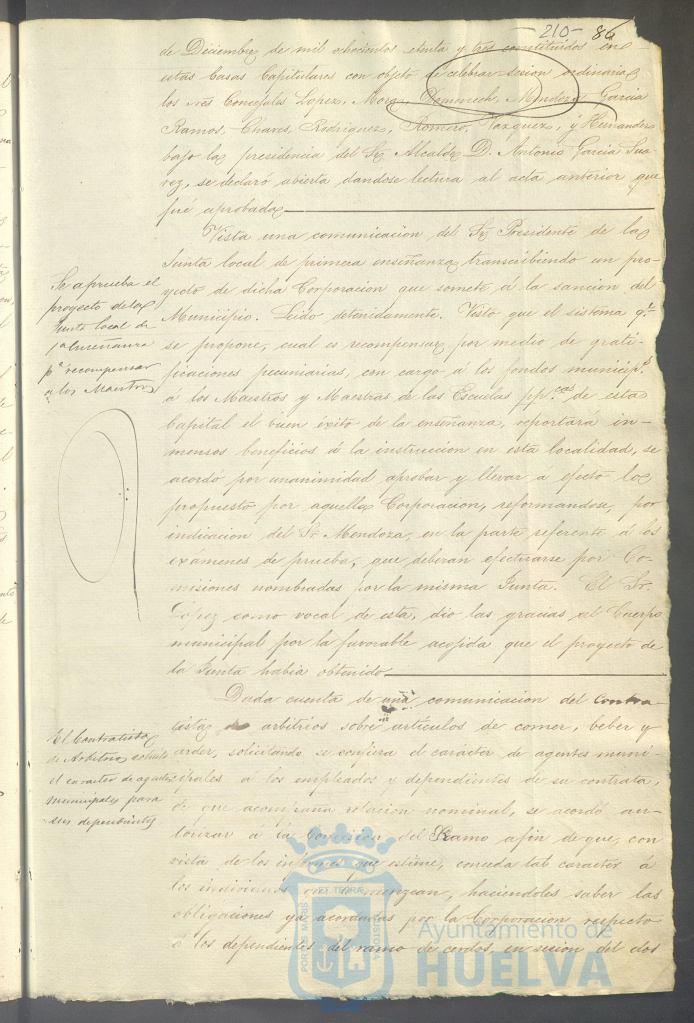 -210- 86
de Diciembre de mil ochocientos ochenta y tres constituidos en
estas Casas Capitulares con objeto de celebrar sesion ordinaria
los Sres Concejales Lopez, Mora, Domenech, Mendoza, Garcia
Ramos, Chaves, Rodriguez, Romero, Vazquez, y Hernandez
bajo la presidencia del Sr Alcalde D. Antonio Garcia Sua
rez, se declaró abierta dandose lectura al acta anterior que
fué aprobada
Vista una comunicacion del Sr Presidente de la
Junta local de primera enseñanza transcribiendo un pro-
yecto de dicha Corporacion que somete á la sancion del
Municipio. Leido detenidamente. Visto que el sistema qe
se propone, cual es recompensar por medio de grati-
ficaciones pecuniarias, con cargo á los fondos municips
á los Maestros y Maestras de las Escuelas ppcas de esta
Capital el buen éxito de la enseñanza, reportará in-
mensos beneficios á la instruccion en esta localidad, se
acordó por unanimidad aprobar y llevar á efecto lo
propuesto por aquella Corporacion, reformandose, por
indicacion del Sr. Mendoza, en la parte referente á los
exámenes de prueba, que deberan efectuarse por Co-
misiones nombradas por la misma Junta. El Sr.
López como vocal de esta, dio las gracias al Cuerpo
municipal por la favorable acojida que el proyecto de
la Junta habia obtenido
Se aprueba el
proyecto de la
Junta local de
1a Enseñanza
pa recompensar
a los Maestros
Dada cuenta de una comunicacion del Contra-
tista de arbitrios sobre articulos de comer, beber y
arder, solicitando se confiera el carácter de agentes muni-
cipales á los empleados y dependientes de su contrata,
de que acompaña relacion nominal, se acordó au-
torizar á la Comision del Ramo afin de que, con
vista de los informes que estime, conceda tal caracter á
los individuos que merezcan, haciendoles saber las
obligaciones ya acordadas por la Corporacion respecto
á los dependientes del ramo de cerdos, en sesion del dos
El Contratista
de Arbitrios solicita
el caracter de agentes
municipales para
sus dependientes
PORTUS MARIS ET TERRAE CUSTODIA
Ayuntamiento de
HUELVA